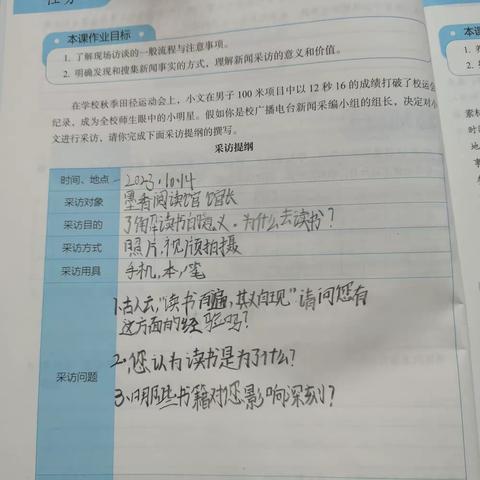 本课作业目标
1. 了解现场访谈的一般流程与注意事项。
2. 明确发现和搜集新闻事实的方式，理解新闻采访的意义和价值。
在学校秋季田径运动会上，小文在男子 100 米项目中以 12 秒 16 的成绩打破了校运会
纪录，成为全校师生眼中的小明星。假如你是校广播电台新闻采编小组的组长，决定对小
文进行采访，请你完成下面采访提纲的撰写。
采访提纲
时间、地点 2023.10.14
采访对象 墨香阅读馆馆长
采访目的 了解读书的意义，为什么去读书？
采访方式 照片，视频拍摄
采访用具 手机，本，笔
1.古人云，"读书百遍，其义自现"请问您有
这方面的经验吗？
采访问题
2，您认为读书是为了什么？
3.哪些书籍对您影响深刻？